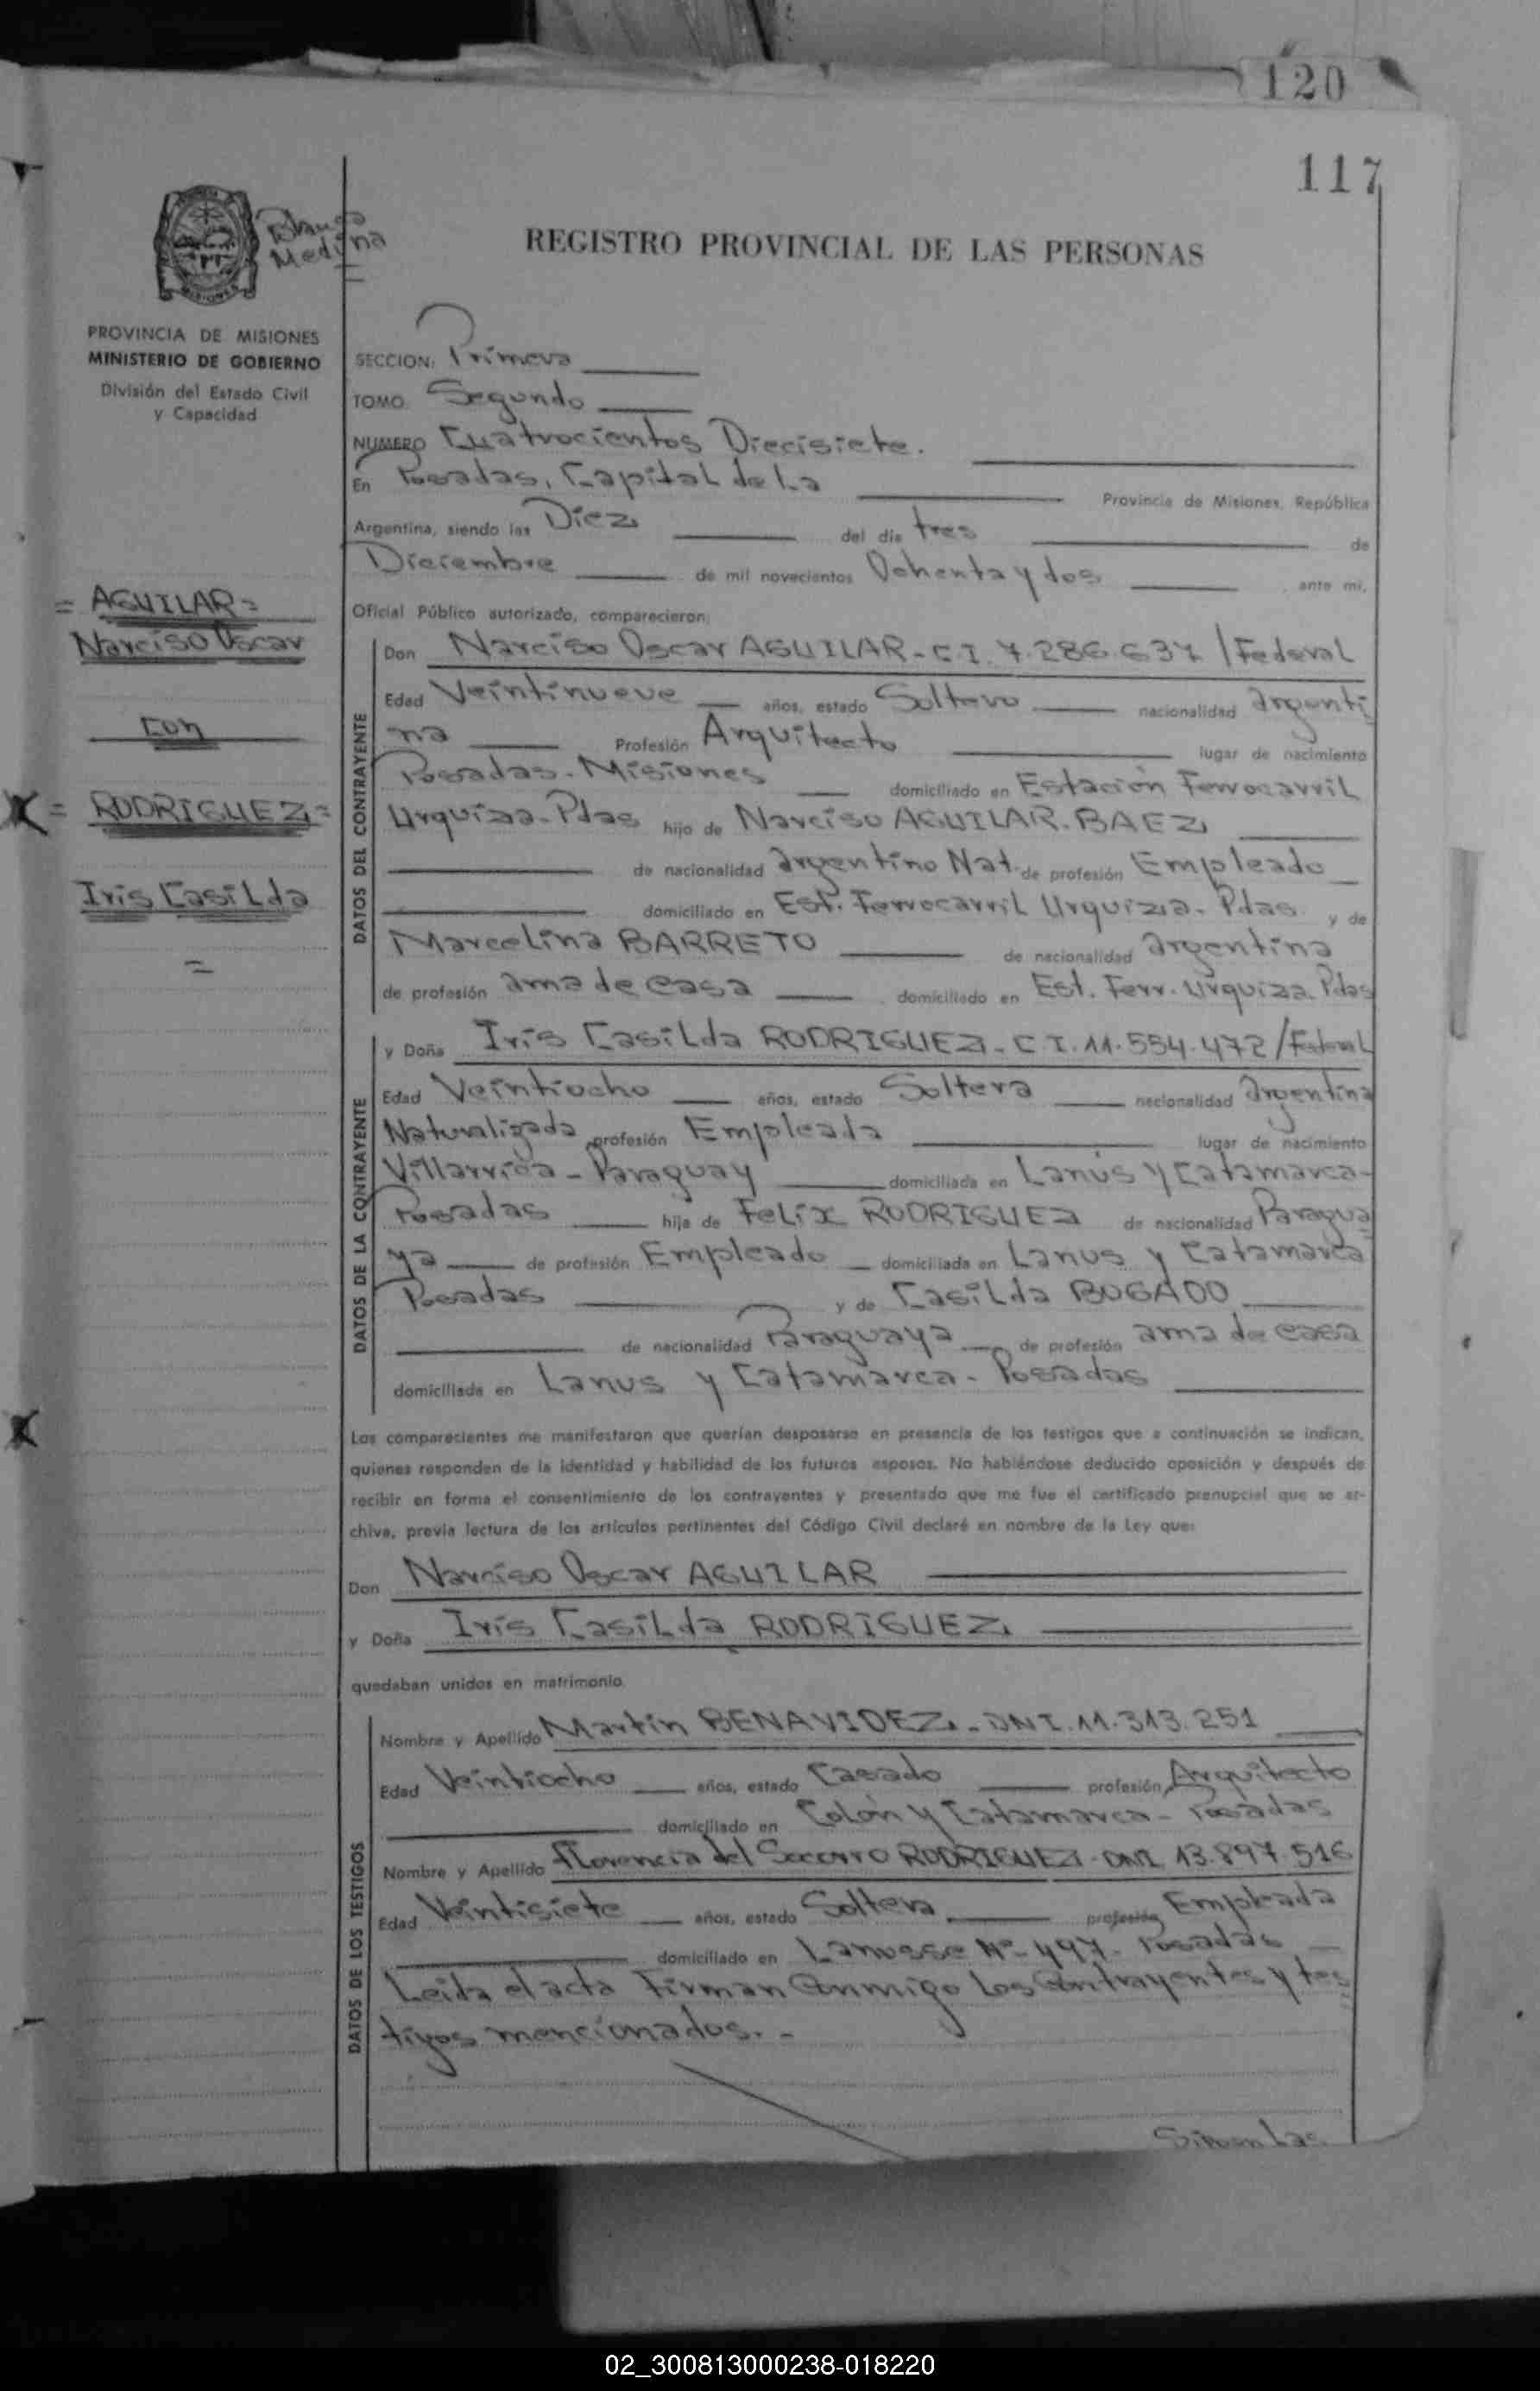 120
117
Blanco
Medina
REGISTRO PROVINCIAL DE LAS PERSONAS
PROVINCIA DE MISIONES
MINISTERIO DE GOBIERNO
División del Estado Civil
y Capacidad
= AGUILAR =
Narciso Oscar
Con
= RODRIGUEZ =
Iris Casilda
=
SECCION: Primera
TOMO Segundo
NUMERO Cuatrocientos Diecisiete.
En Posadas, Capital de La Provincia de Misiones, República
Argentina, siendo las Diez del día tres de
Diciembre de mil novecientos Ochenta y dos ante mí,
Oficial Público autorizado, comparecieron:
DATOS DEL CONTRAYENTE
Don Narciso Oscar AGUILAR - C.I. 7.286.637 / Federal
Edad Veintinueve años, estado Soltero nacionalidad argenti
na Profesión Arquitecto lugar de nacimiento
Posadas - Misiones domiciliado en Estación Ferrocarril
Urquiza - Pdas hijo de Narciso AGUILAR - BAEZ
de nacionalidad argentino Nat. de profesión Empleado
domiciliado en Est. Ferrocarril Urquiza - Pdas y de
Marcelina BARRETO de nacionalidad argentina
de profesión ama de casa domiciliado en Est. Ferr. Urquiza Pdas
DATOS DE LA CONTRAYENTE
y Doña Iris Casilda RODRIGUEZ - C I. 11.554.472 / Federal
Edad Veintiocho años, estado Soltera nacionalidad argentina
Naturalizada profesión Empleada lugar de nacimiento
Villarrica - Paraguay domiciliada en Lanús y Catamarca -
Posadas hija de Felix RODRIGUEZ de nacionalidad Paragua
ya de profesión Empleado domiciliada en Lanus y Catamarca
Posadas y de Casilda BOGADO
de nacionalidad Paraguaya de profesión ama de casa
domiciliada en Lanus y Catamarca - Posadas
Los comparecientes me manifestaron que querían desposarse en presencia de los testigos que a continuación se indican,
quienes responden de la identidad y habilidad de los futuros esposos. No habiéndose deducido oposición y después de
recibir en forma el consentimiento de los contrayentes y presentado que me fue el certificado prenupcial que se ar-
chiva, previa lectura de los artículos pertinentes del Código Civil declaré en nombre de la Ley que:
Don Narciso Oscar AGUILAR
y Doña Iris Casilda RODRIGUEZ
quedaban unidos en matrimonio.
DATOS DE LOS TESTIGOS
Nombre y Apellido Martín BENAVIDEZ - DNI. 11.313.251
Edad Veintiocho años, estado Casado profesión Arquitecto
domiciliado en Colón y Catamarca - Posadas
Nombre y Apellido Florencia del Socorro RODRIGUEZ - DNI. 13.897.516
Edad Veintisiete años, estado Soltera profesión Empleada
domiciliado en Lanusse Nº 497 - Posadas
Leida el acta Firman Conmigo Los Contrayentes y tes
tigos mencionados. -
Siguen Las
02_300813000238-018220